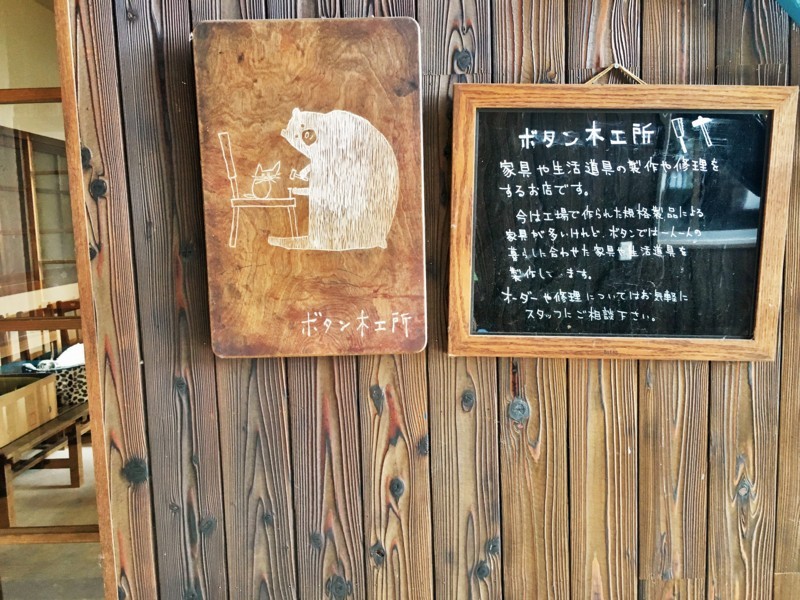 ボタン木工所
ボタン木工所
家具や生活道具の製作や修理を
するお店です。
今は工場で作られた規格製品による
家具が多いけれど、ボタンでは一人一人の
暮らしに合わせた家具や生活道具を
製作して ます。
オーダーや修理についてはお気軽に
スタッフにご相談下さい。